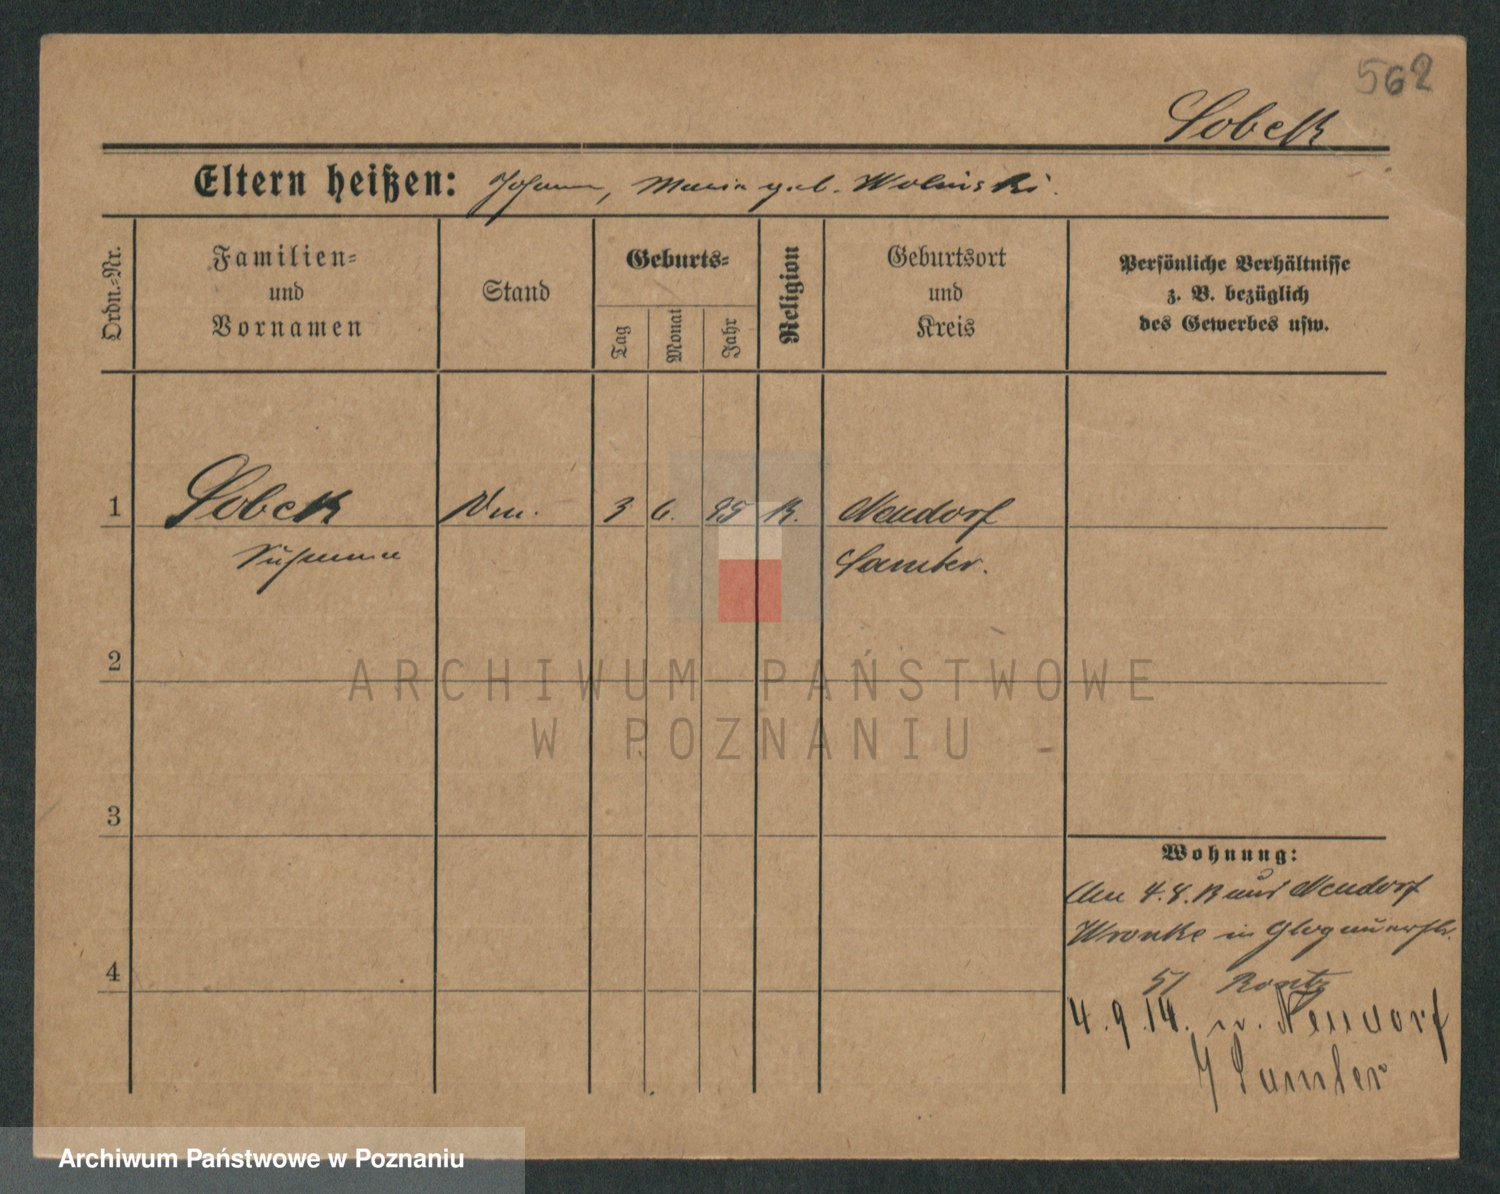 562
Sobek
Eltern heißen: Johann, Maria geb. Wolniski.
Ordn.-Nr.
Familien-
und
Vornamen
Stand
Geburts-
Tag
Monat
Jahr
Religion
Geburtsort
und
Kreis
Persönliche Verhältnisse
z. B. bezüglich
des Gewerbes usw.
1 Sobek 3 6. 95 K. Neudorf
Samter.
2
ARCHIWUM PAŃSTWOWE
W POZNANIU -
3
Wohnung:
4. 8. 13 aus Neudorf
Wronke in Glogauerstr.
4
51
4. 9. 14. n. Neudorf
Samter
Archiwum Państwowe w Poznaniu